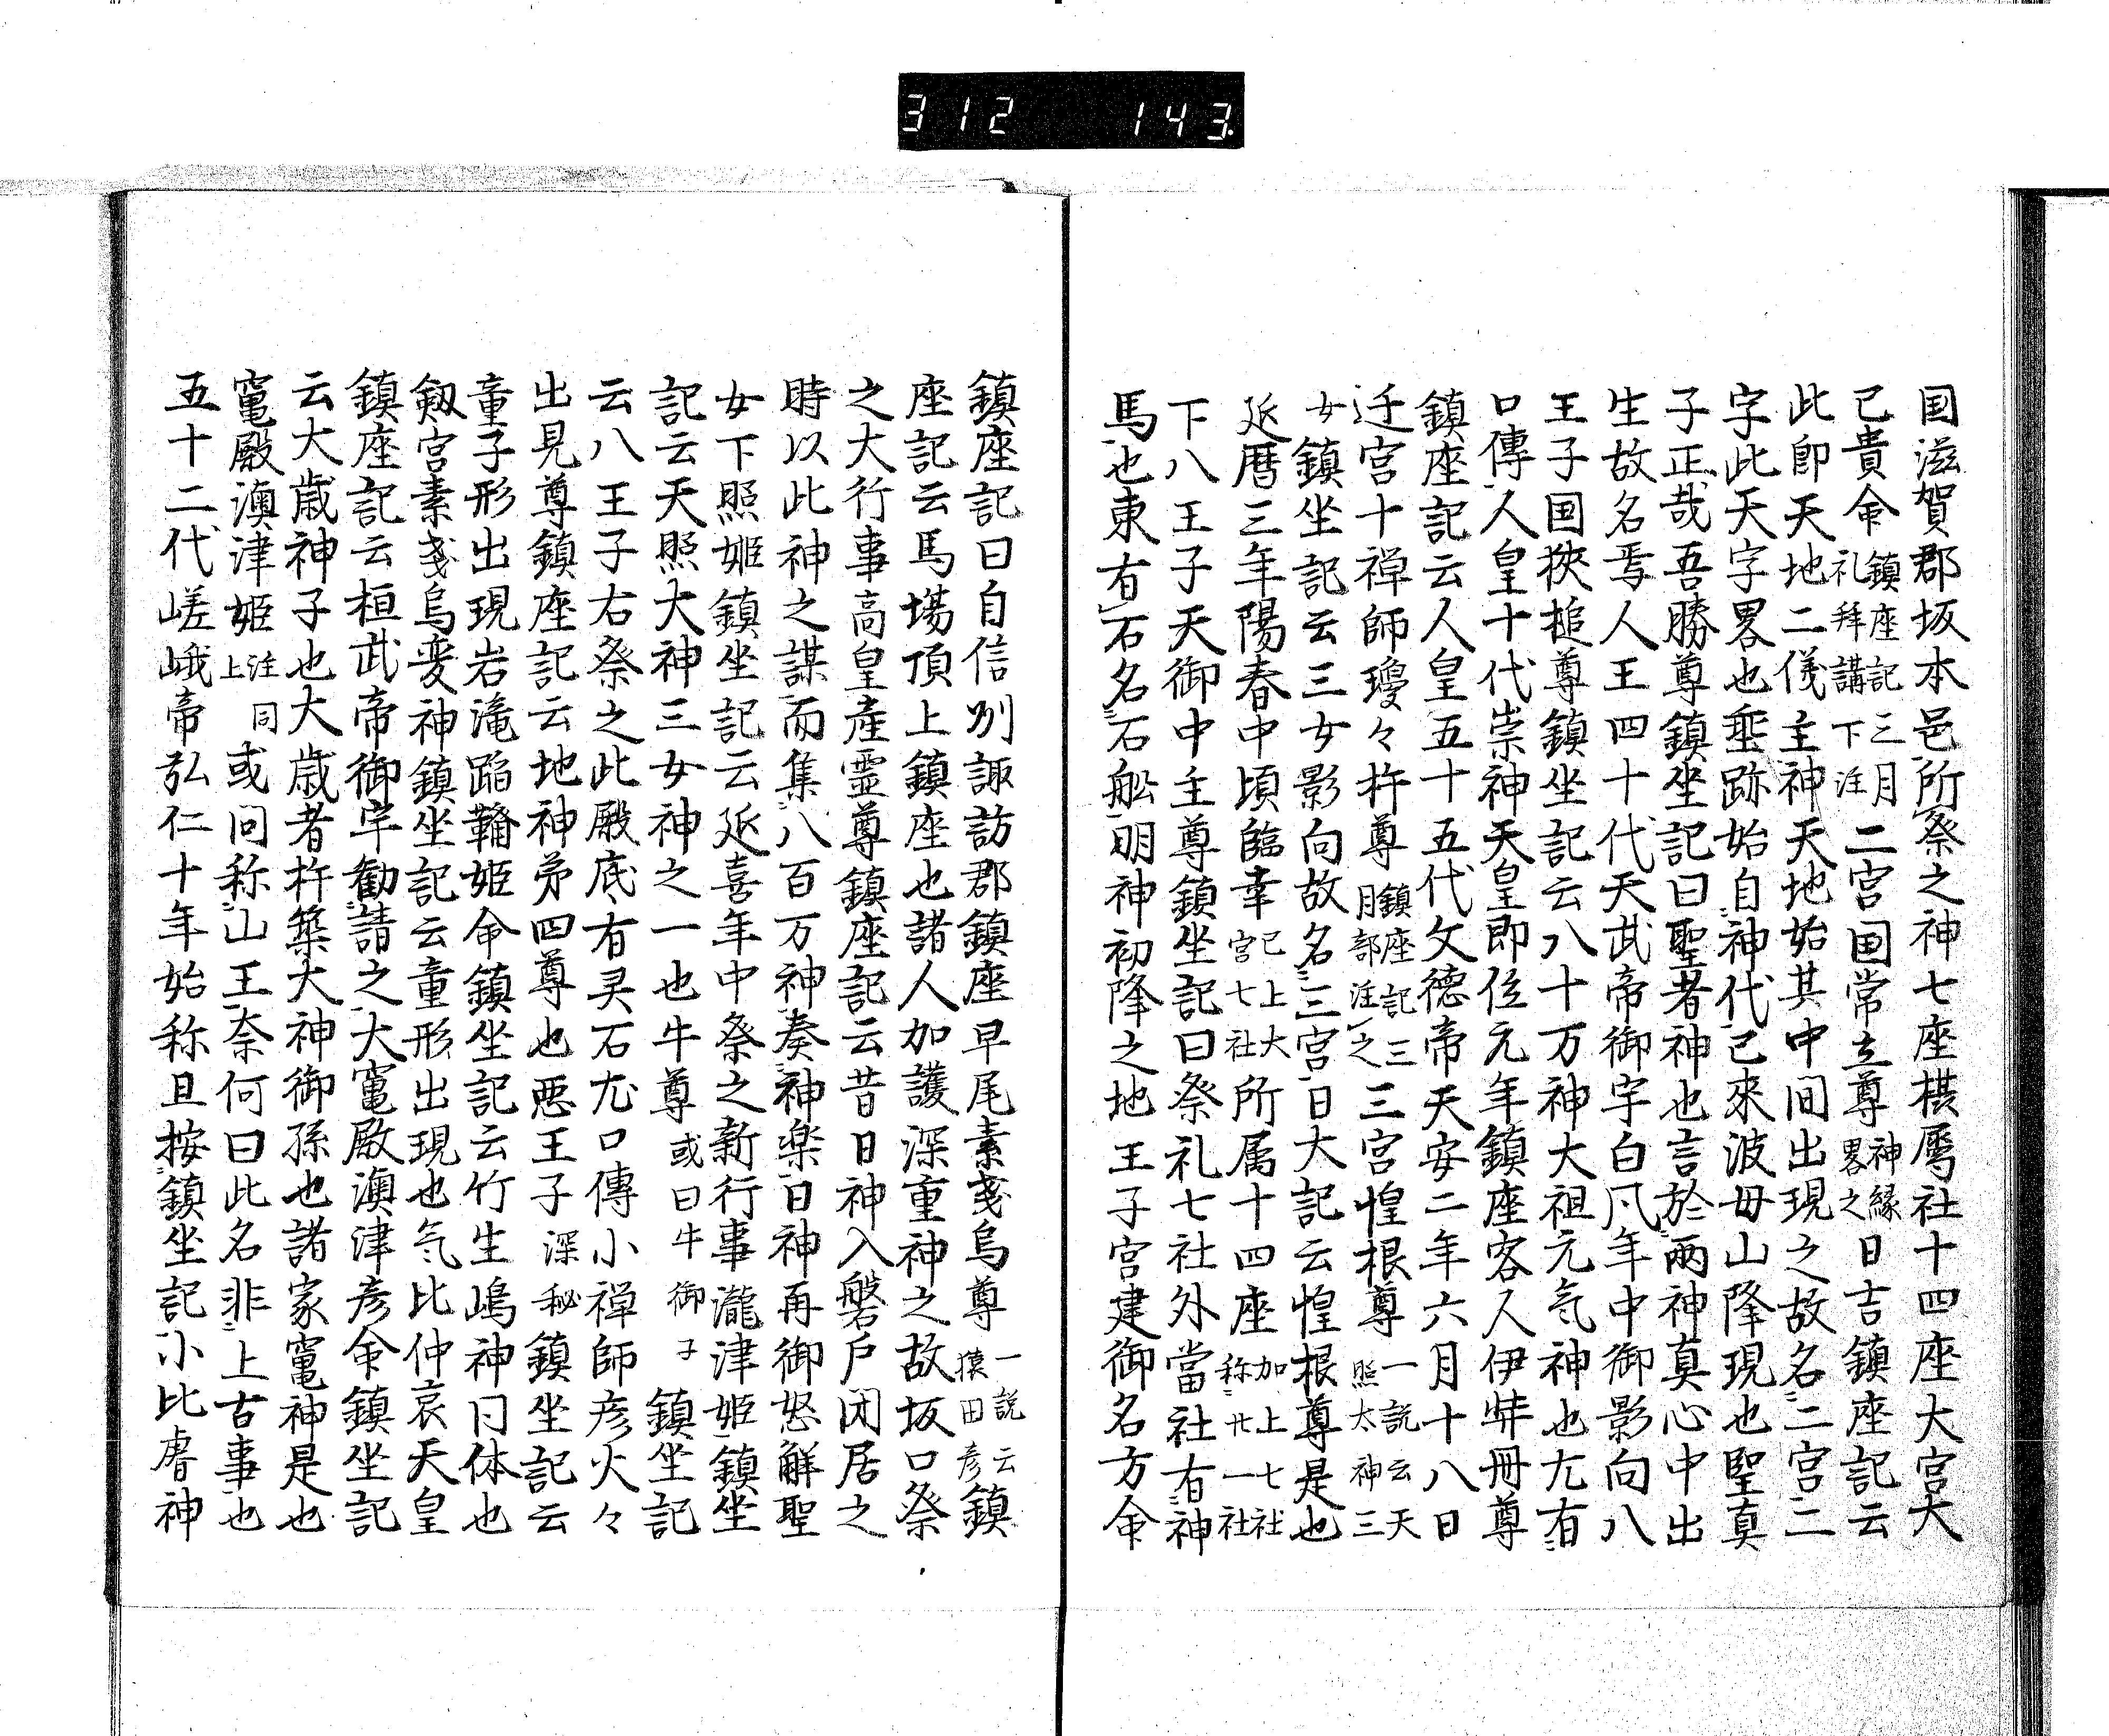 312 143.
国滋賀郡坂本邑所祭之神七座摂属社十四座大宮大
己貴命鎮座記三月礼拜講下注二宮国常立尊神縁畧之日吉鎮座記云
此即天地二儀主神天地始其中间出現之故名二宮二
字此天字畧也垂跡始自神代已來波母山降現也聖真
子正哉吾勝尊鎮坐記曰聖者神也言於兩神真心中出
生故名焉人王四十代天武帝御宇白凡年中御影向八
王子国狹槌尊鎮坐記云八十万神大祖元気神也尤有
口傳人皇十代崇神天皇即位元年鎮座客人伊弉冊尊
鎮座記云人皇五十五代文德帝天安二年六月十八日
迁宮十禅師瓊々杵尊鎮座記三月部注之三宮惶根尊一説云天照太神三
女鎮坐記云三女影向故名三宮日大記云惶根尊是也
延暦三年陽春中頃臨幸已上大宮七社所属十四座加上七社称廿一社
下八王子天御中主尊鎮坐記曰祭礼七社外當社有神
馬也東有石名石舩明神初降之地王子宮建御名方命
鎮座記曰自信刕諏訪郡鎮座早尾素戔烏尊一説云猿田彦鎮
座記云馬場頂上鎮座也諸人加護深重神之故坂口祭
之大行事高皇產霊尊鎮座記云昔日神入磐戶閉居之
時以此神之謀而集八百万神奏神楽日神再御怒解聖
女下照姬鎮坐記云延喜年中祭之新行事瀧津姬鎮坐
記云天照大神三女神之一也牛尊或曰牛御子鎮坐記
云八王子右祭之此殿底有灵石尤口傳小禅師彦火々
出見尊鎮座記云地神苐四尊也悪王子深秘鎮坐記云
童子形出現岩滝蹈鞴姬命鎮坐記云竹生嶋神同体也
劔宮素戔烏変神鎮坐記云童形出現也気比仲哀天皇
鎮座記云桓武帝御宇勸請之大竃殿澳津彦命鎮坐記
云大歳神子也大歳者杵築大神御孫也諸家竃神是也
竃殿澳津姬注同上或问称山王奈何曰此名非上古事也
五十二代嵯峨帝弘仁十年始称且按鎮坐記小比睿神